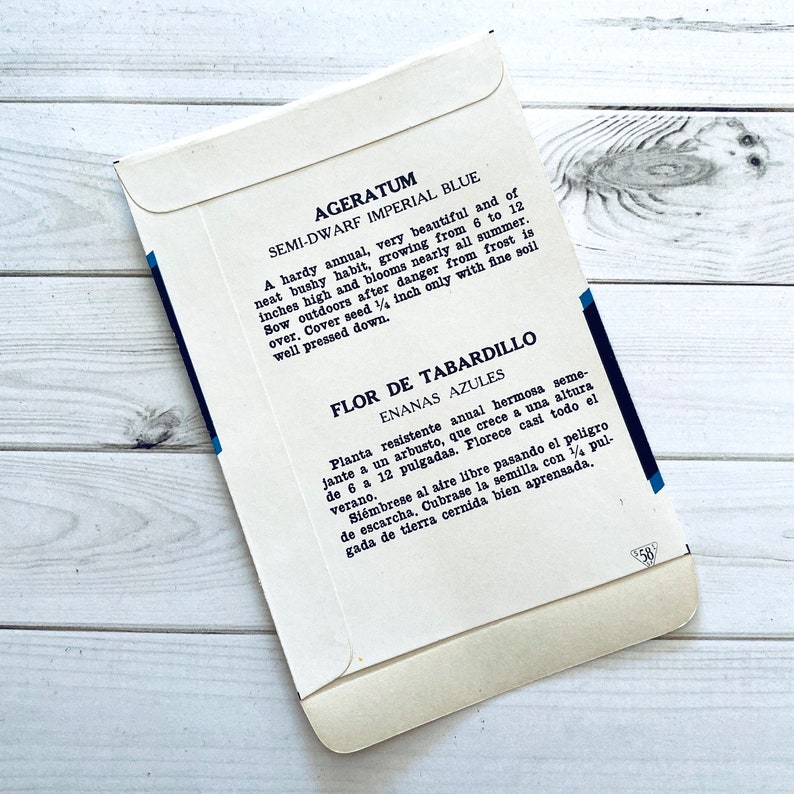 AGERATUM
SEMI-DWARF IMPERIAL BLUE
A hardy annual, very beautiful and of
neat bushy habit, growing from 6 to 12
inches high and blooms nearly all summer.
Sow outdoors after danger from frost is
over. Cover seed ¼ inch only with fine soil
well pressed down.
FLOR DE TABARDILLO
ENANAS AZULES
Planta resistente anual hermosa seme-
jante a un arbusto, que crece a una altura
de 6 a 12 pulgadas. Florece casi todo el
verano.
Siémbrese al aire libre pasando el peligro
de escarcha. Cubrase la semilla con ¼ pul-
gada de tierra cernida bien aprensada.
58